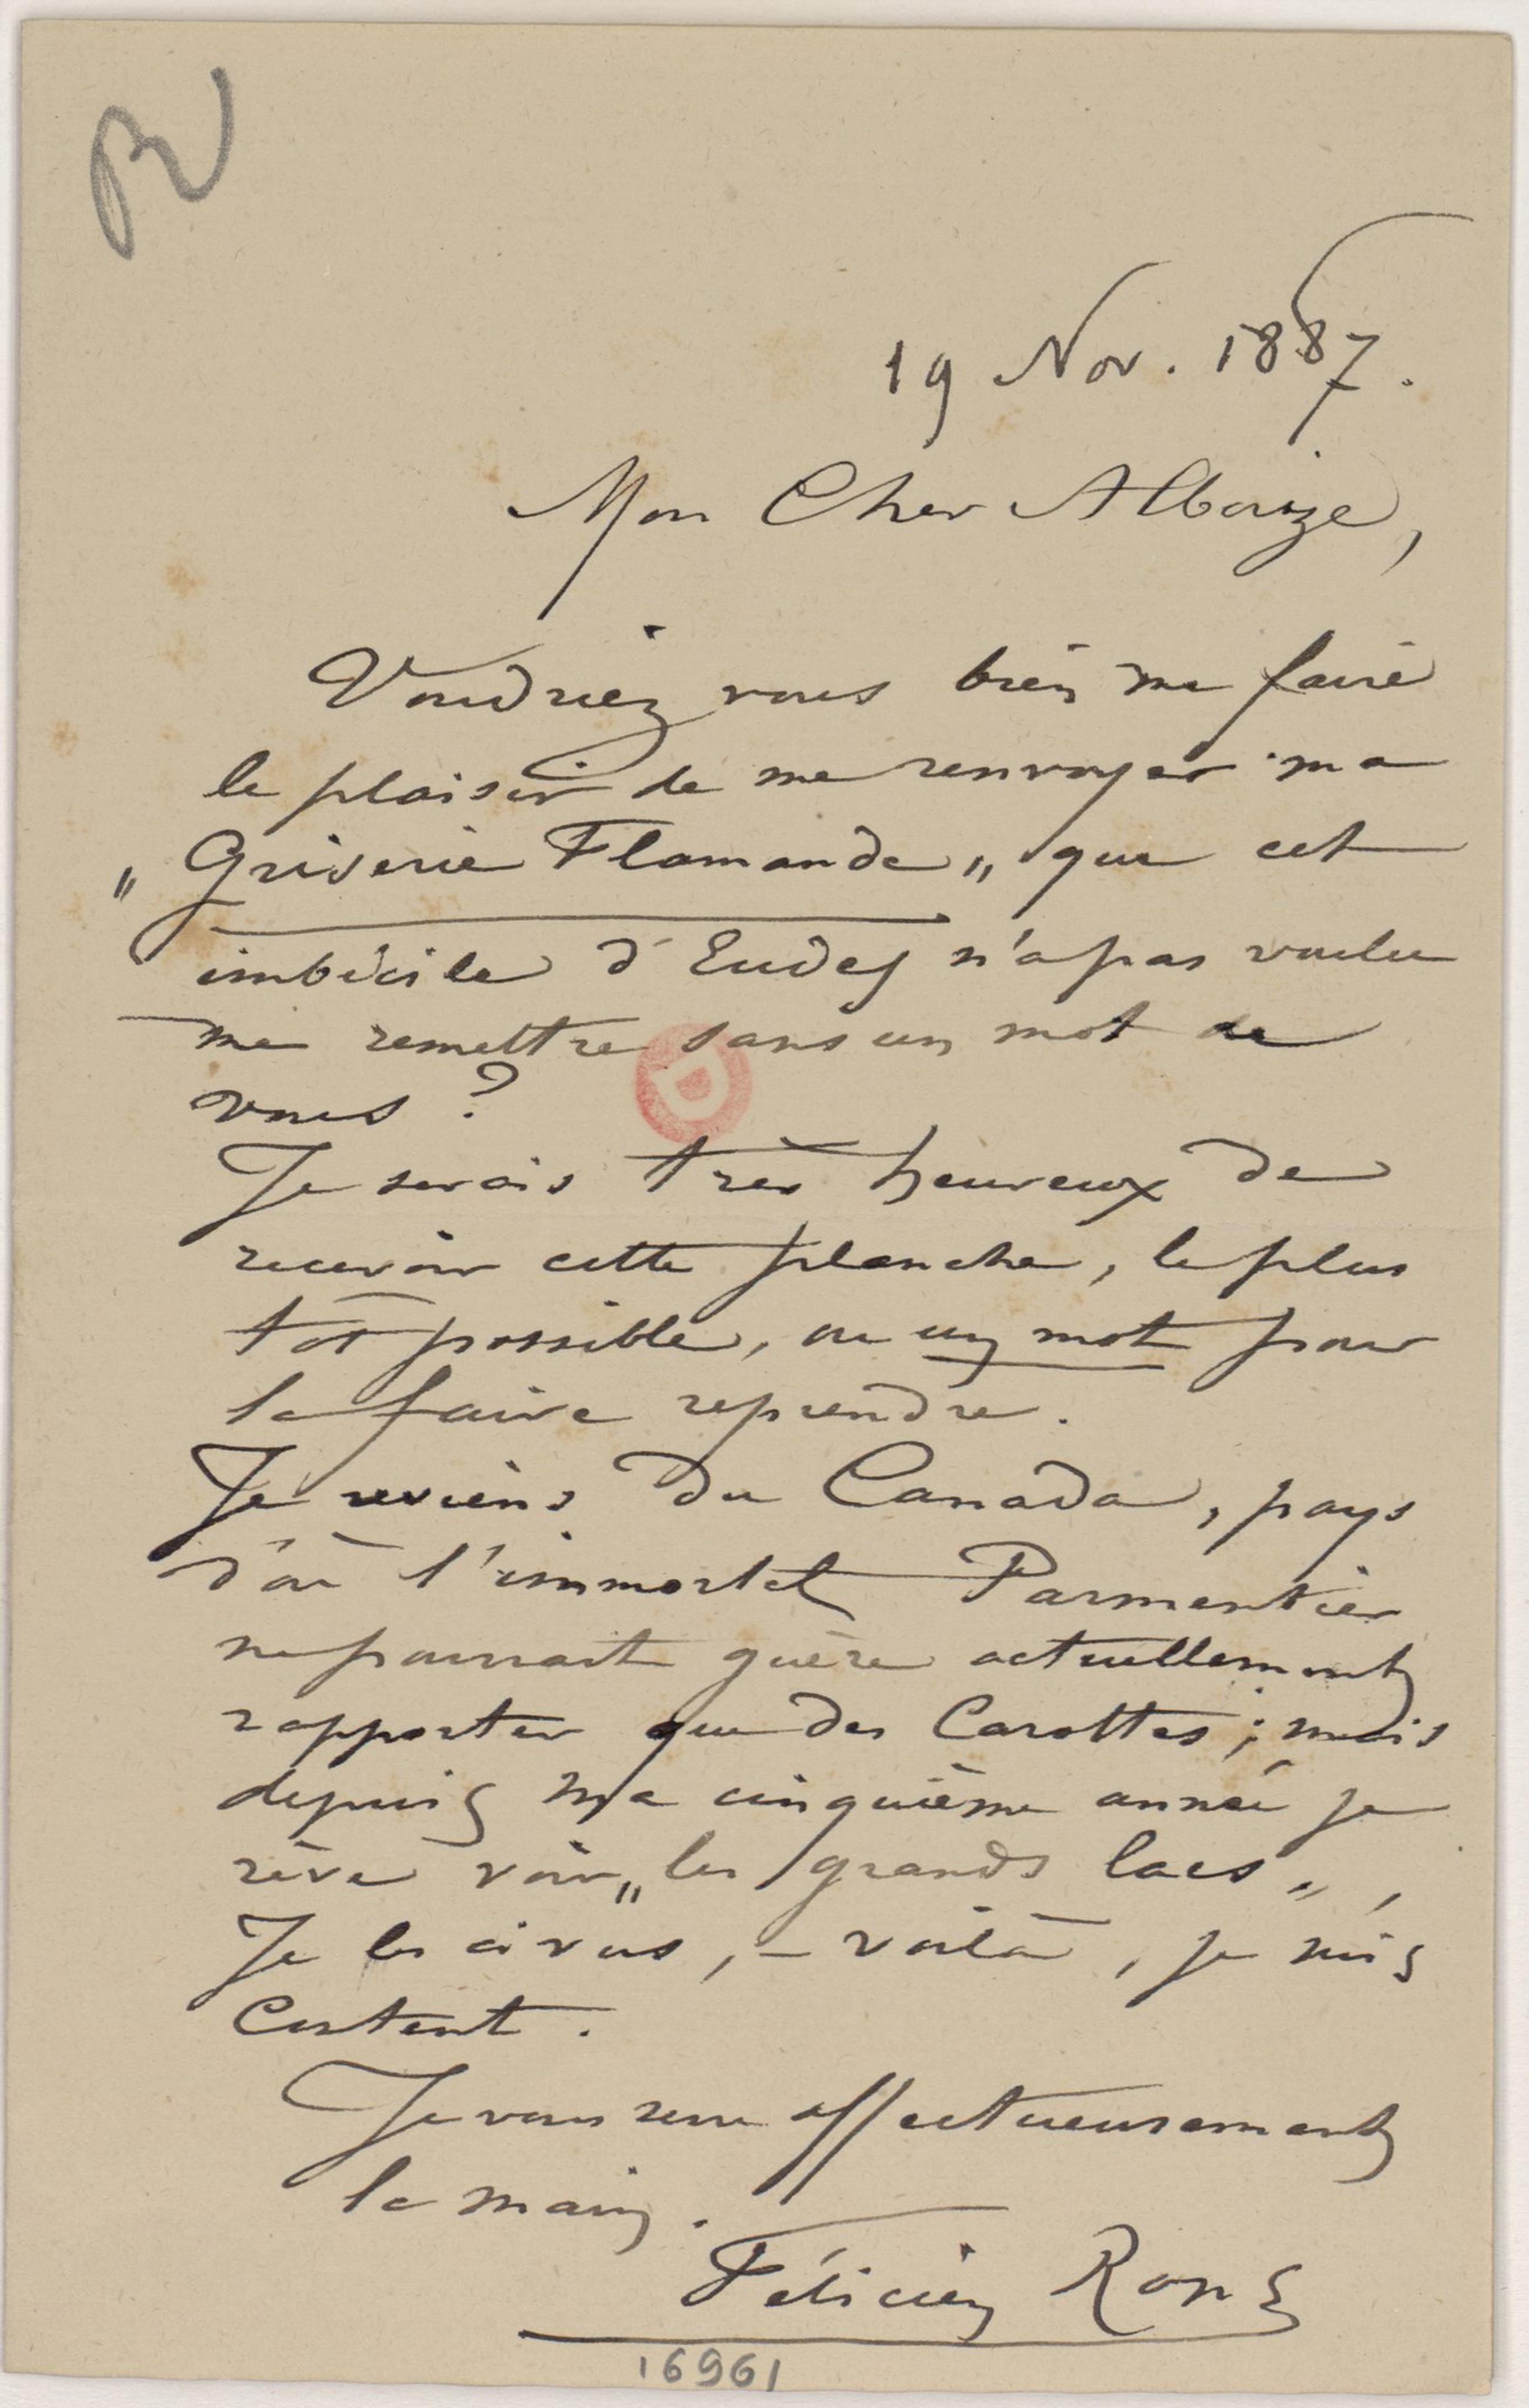 R
19 Nov. 1887.
Mon Cher Alboize,
Voudriez vous bien me faire
le plaisir de me renvoyer ma
„ Griserie Flamande „ que cet
imbécile d'Eudes n'a pas voulu
me remettre sans un mot de
vous ?
Je serais très heureux de
recevoir cette planche, le plus
tôt possible, ou un mot pour
la faire reprendre.
Je reviens du Canada, pays
d'où l'immortel Parmentier
ne pourrait guère actuellement
rapporter que des Carottes ; mais
depuis ma cinquième année je
rêve voir „ les grands lacs „ ,
Je les ai vus, – voilà, je suis
Content .
Je vous serre affectueusement
la main.
Félicien Rops
16961